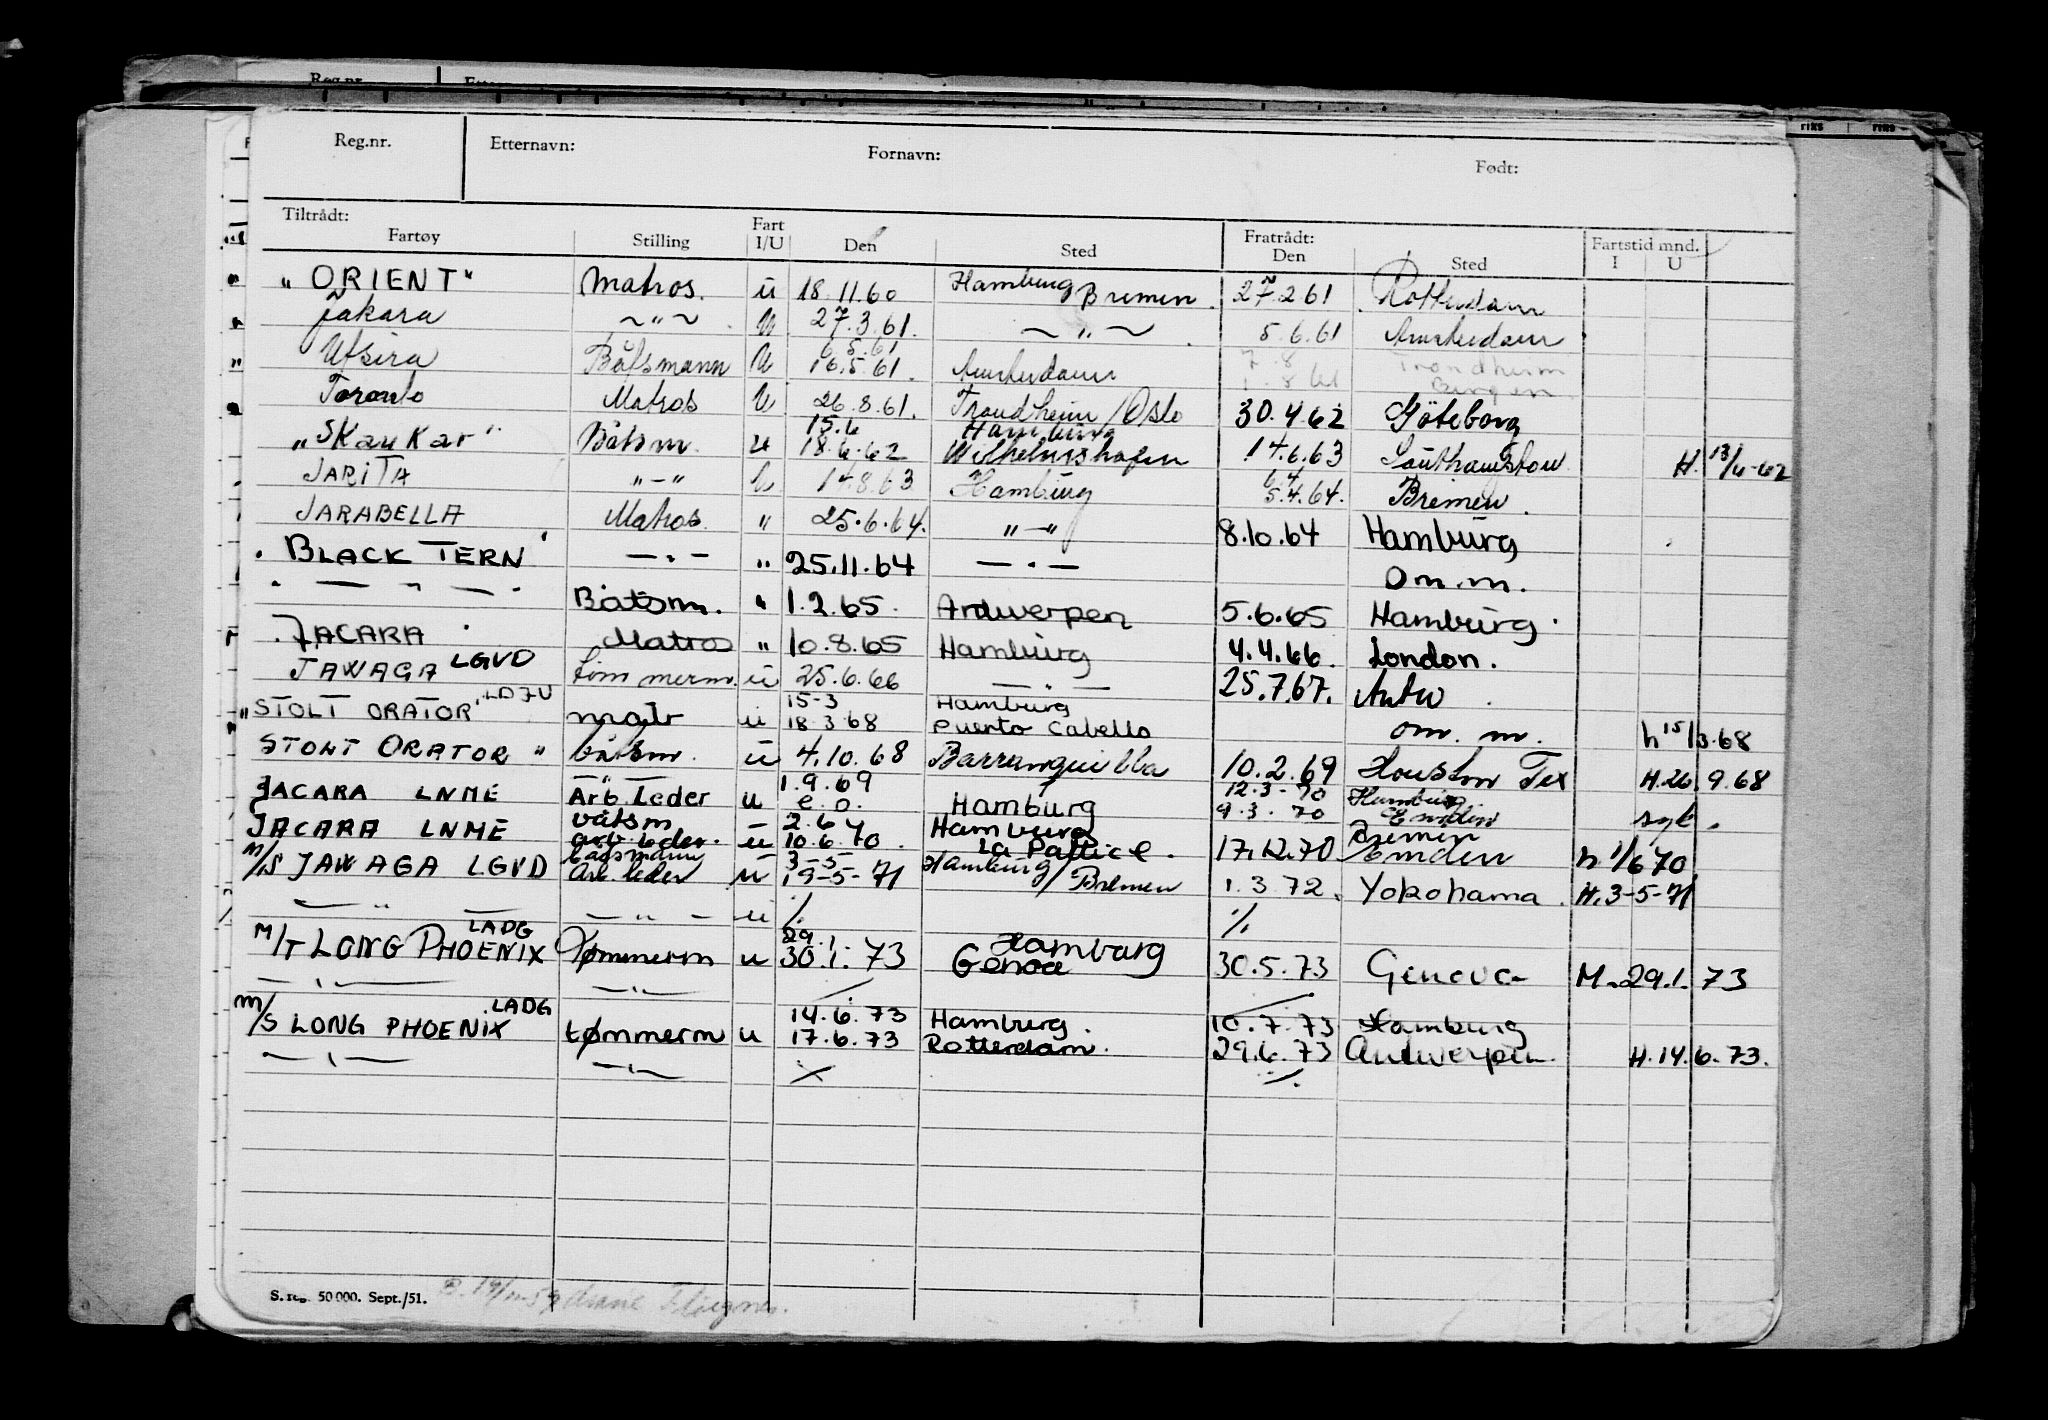 Reg.nr. Etternavn: Fornavn: Født:
Tiltrådt: Fratrådt: Fartstid mnd.
Fartøy Stilling Fart I/U Den Sted Den Sted I U
"ORIENT" Matros. ü 18.11.60 Hamburg Bremen. 27.2.61 Rotterdam
Jakara ~"~ U 27.3.61. ~"~ 5.6.61 Amsterdam
6.5.61 7.8 Trondheim
Utsira Båtsmann U 16.5.61. Amsterdam 1.8.61 Bergen
Toronto Matros U 26.8.61. Trondheim/Oslo 30.4.62 Göteborg
15.6 Hamburg
"Skaukar" Båtsm. u 18.6.62 Wilhelmshafen 14.6.63 Southampton H. 13/6-62
6.4
JARITA "-" U 14.8.63 Hamburg 5.4.64. Bremen.
JARABELLA Matros. " 25.6.64. "-" 8.10.64 Hamburg
BLACK TERN' -"- " 25.11.64 -"- Om.m.
-"- Båtsm. " 1.2.65. Antwerpen 5.6.65 Hamburg.
JACARA Matros " 10.8.65 Hamburg 4.4.66. London.
JAWAGA LGVD tømmerm. ü 25.6.66 -"- 25.7.67. Antw.
15-3 Hamburg
"STOLT ORATOR" matr ü 18.3.68 Puerto Cabello om. m. h 15/3.68
STOLT ORATOR" båtsm. ü 4.10.68 Barranquilla 10.2.69 Houston Tex H.26.9.68
1.9.69 12.3-70 Hamburg
JACARA LNME Arb. Leder u e.o. Hamburg 9.3.70 Emden syk.
båtsm 2.6 Hamburg Bremen
JACARA LNME arb. leder. ü 10.6.70. La Pallice. 17.12.70 Emden h 1/6 70
båtsmann 3-5-
M/S JAWAGA LGVD arb. leder u 19-5-71 Hamburg/Bremen 1.3.72. Yokohama. H.3-5-71
-"- -"- u % %
LADG 29. Hamburg
M/T LONG PHOENIX Tømmerm u 30.1.73 Genoa 30.5.73 Genova M.29.1.73
-"- -"- / /
LADG 14.6.73 Hamburg. 10.7.73 Hamburg
M/S LONG PHOENIX tømmerm u 17.6.73 Rotterdam. 29.6.73 Antwerpen. H.14.6.73.
-"- -"- % %
S. reg. 50 000. Sept./51.